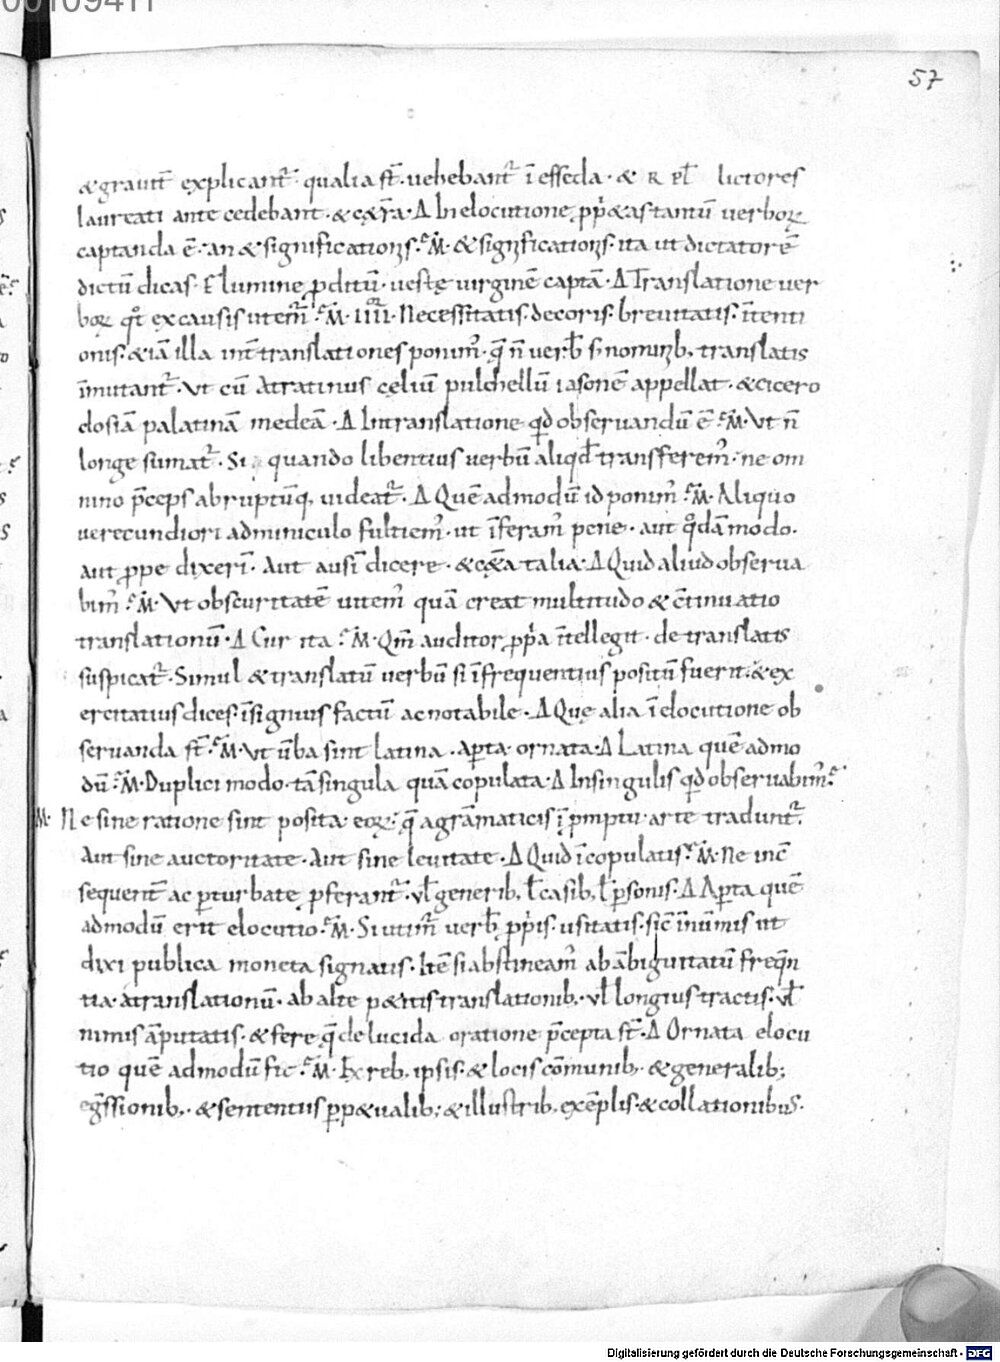 00109411
57
&graviť explicanť qualia sť· vehebanť ī esseda· & R PL lictores
laureati ante cedebant· & cęťa· Δ In elocutione ppⁱ&as tantū verboꝝ
captanda ē· an & significationis· M̃· & significationis· ita ut dictatorē
dictū dicas· E lumine ꝓditū· vestę virginē captā· Δ Translatione ver
boꝝ qͦt ex causis utem̃· M̃· IIIIᵒʳ· Necessitatis· decoris· brevitatis· ītenti
onis· & iā illa int̃ translationes ponim̃· q̄ n̄ verb̄ s; nominib; translatis
īmutanť· Vt cū Atratinus cęliū pulchellū iasonē appellat· & cicero
closiā palatinā medeā· Δ In translatione qd observandū ē· M̃· Vt n̄
longe sumať· Si quando libentius verbū aliqd transferem̃· ne om
nino p̄ceps abruptūq; videať· Δ Quē admodū id ponim̃· M̃· Aliquo
verecundiori adminiculo fultiem̃· ut īferam̃ pene· aut qͦdāmodo·
aut ꝓpe dixeri͂· Aut ausi͂ dicere· & cęťa talia· Δ Quid aliud observa
bim̃· M̃· Vt obscuritatē vitem̃ quā creat multitudo & c̄tinuatio
translationū· Δ Cur ita· M̃· Qm̃ auditor ꝓpⁱa ītellegit· de translatis
suspicať· Simul & translatū verbū si īfrequentius positū fuerit· & ex
ercitatius dices· īsignius factū ac notabile· Δ Quę alia ī elocutione ob
servanda sť· M̃· Vt v̄ba sint latina· Apta· ornata· Δ Latina quē admo
dū· M̃· Duplici modo· tā singula quā copulata· Δ In singulis qd observabim̃·
M· Ne sine ratione sint posita· eoꝝ· q̄ a grāmaticis ī p̄mptu arte tradunť·
Aut sine auctoritate· Aut sine levitate· Δ Quid ī copulatis· M̃· Ne inc̄
sequenť ac pturbate pferanť· vł generib; ł casib; ł psonis· Δ Apta quē
admodū erit elocutio· M̃· Si utim̃ verb̄ ꝓpⁱis· usitatis· sic̄ ī nūmis ut
dixi publica moneta signatis· Itē si abstineam̃ ab ābiguitatū freq̄n
tia· a translationū· ab alte p&itis translationib;· vł longius tractis· vł
nimis āputatis· & fere q̄ de lucida oratione p̄cepta sť· Δ Ornata elocu
tio quē admodū fit· M̃· Ex reb; ipsis· & locis cōmunib;· & generalib;
eg̃ssionib;· & sententiis ꝑp&ualib;· & illustrib; exēplis· & collationibus·
Digitalisierung gefördert durch die Deutsche Forschungsgemeinschaft - DFG